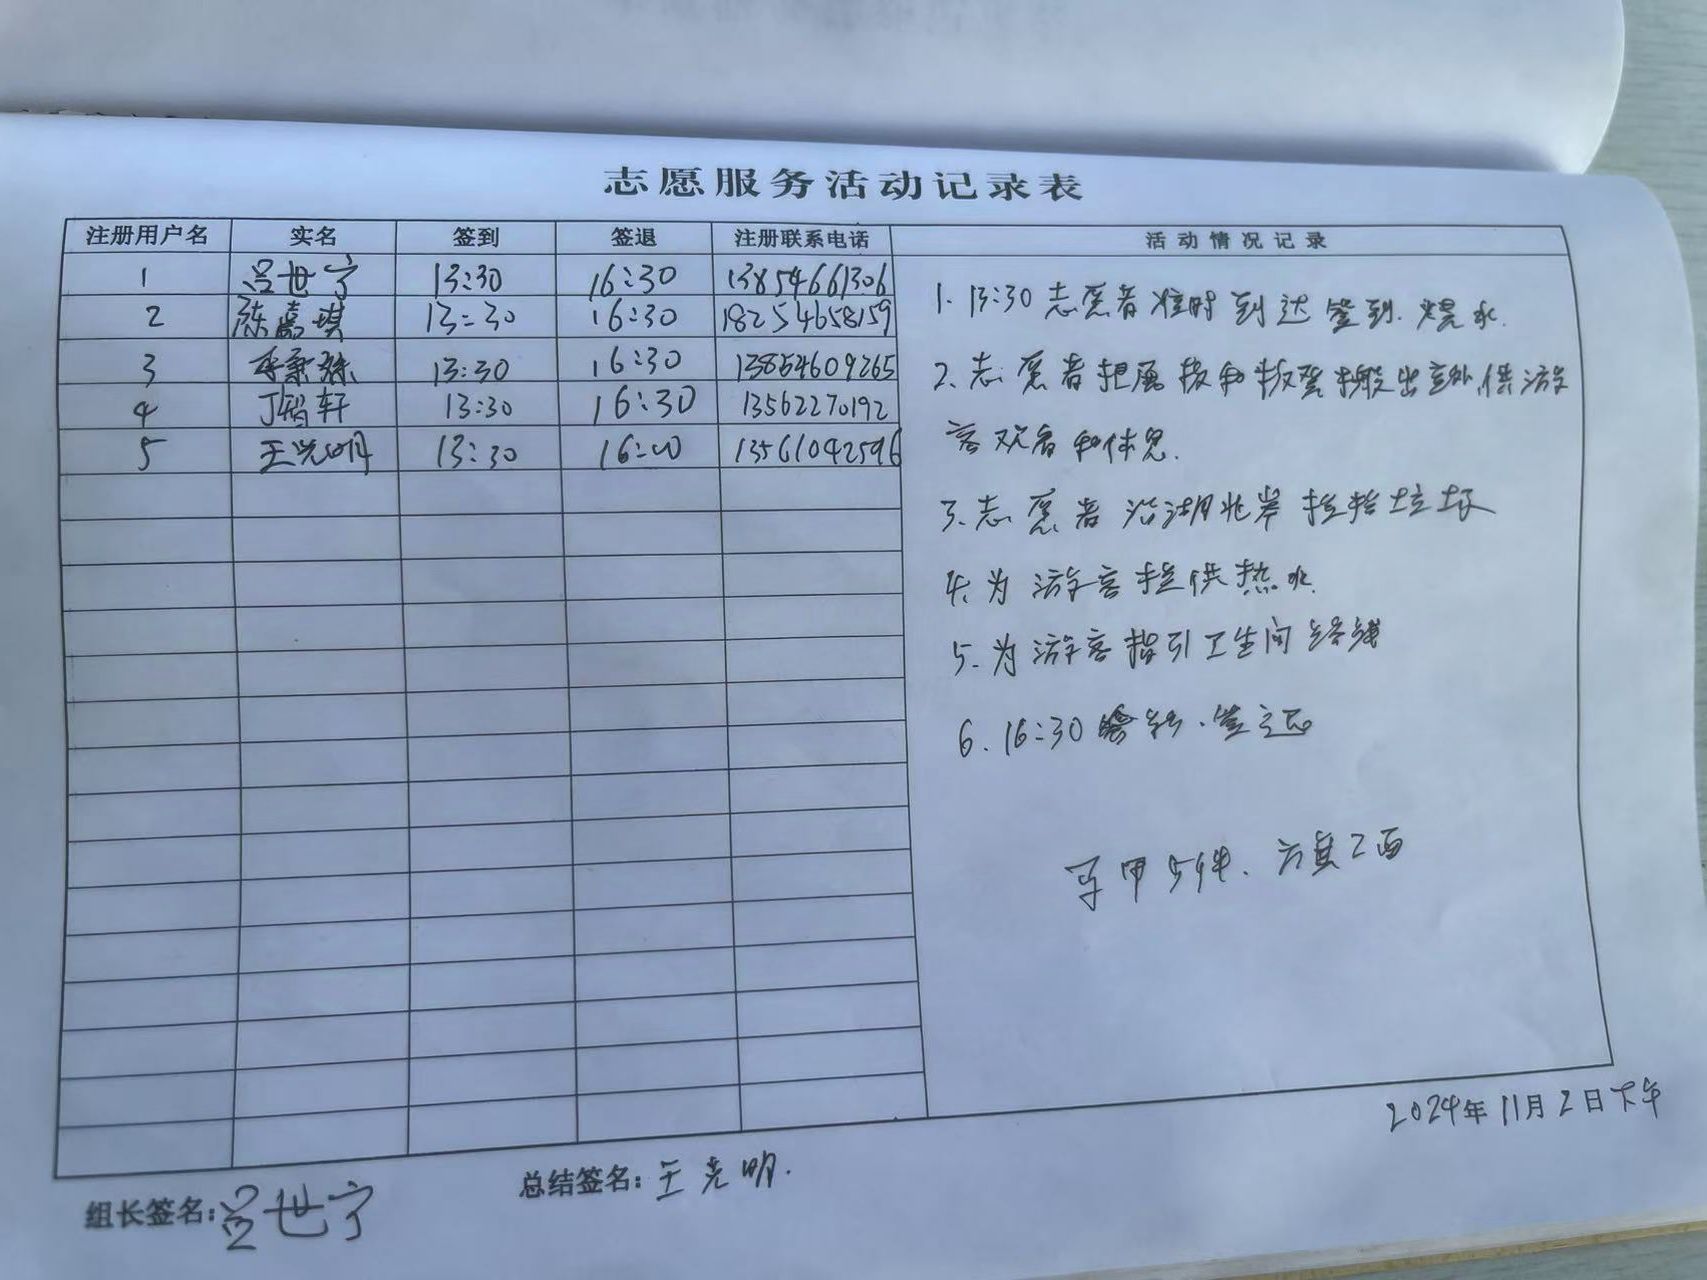 志愿服务活动记录表
注册用户名 实名 签到 签退 注册联系电话 活动情况记录
1 吕世宁 13:30 16:30 13854661306
2 陈嘉琪 13:30 16:30 18254658159
3 13:30 16:30 13854609265
4 丁智轩 13:30 16:30 13562270192
5 王光明 13:30 16:00 13561042596
1. 13:30 志愿者准时到达签到.烧水.
2. 志愿者把展板和板凳搬出室外,供游
客观看和休息.
3. 志愿者沿湖北岸捡拾垃圾
4. 为游客提供热水.
5. 为游客指引卫生间路线
6. 16:30 签退
马甲5件. 2面
2024年11月2日下午
组长签名:吕世宁
总结签名:王光明.